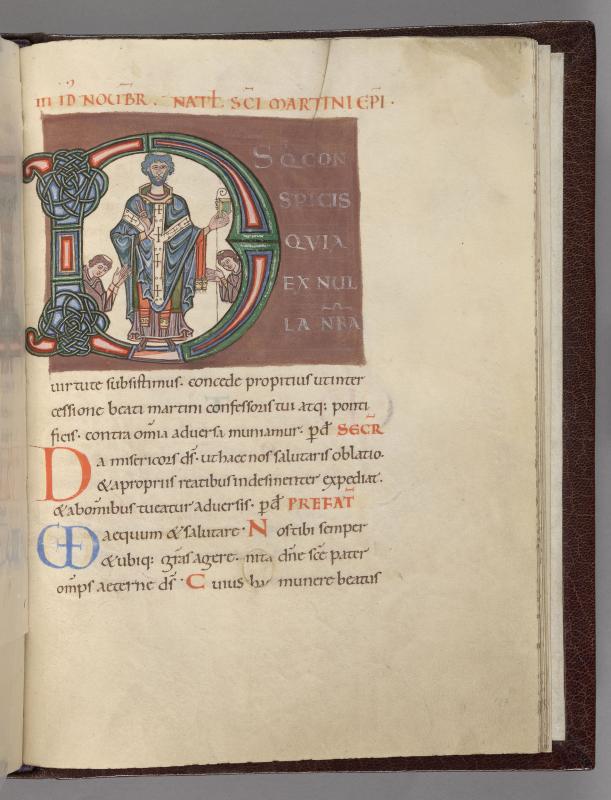 III ID NOUBR. NATL SCI MARTINI EPI.
DS Q CON
SPICIS
QVIA
EX NUL
LA NRA
uirtute subsistimus. concede propitius ut inter
cessione beati martini confessoris tui atq; ponti
ficis. contra omia aduersa muniamur. p d SECR
Da misericors ds. ut haec nos salutaris oblatio.
& apropriis reatibus indesinenter expediat.
& abomibus tueatur aduersis. p d PREFAT
aequum & salutare. Nos tibi semper
& ubiq; gras agere. dne sce pater
omps aeterne ds. Cuius munere beatus